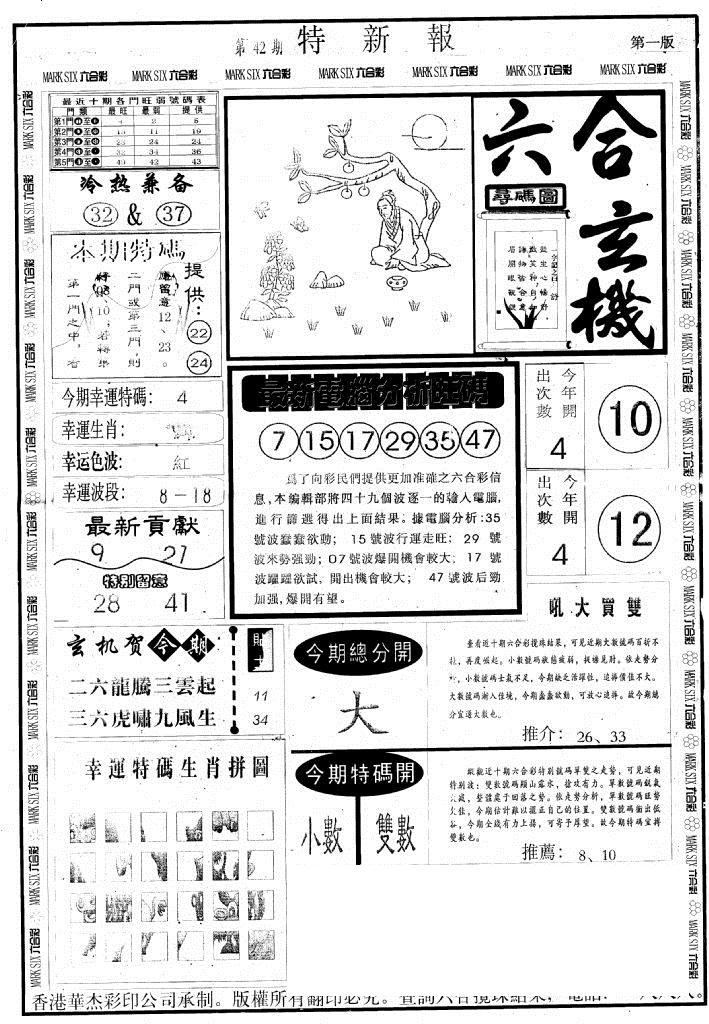 第42期 特新報 第一版
MARK SIX 六合彩 MARK SIX 六合彩 MARK SIX 六合彩 MARK SIX 六合彩 MARK SIX 六合彩 MARK SIX 六合彩 MARK SIX 六合彩
最近十期各門旺弱號碼表
門類 最旺 最弱 提供
第2門 11 19
第3門 24 24
第4門 32 34 36
第5門 40 42 43
冷热兼备
32 & 37
本期特碼
提供:
22
24
應留意12、23。
二門或第三門,則
第一門之中,若
今期幸運特碼: 4
幸運生肖:
幸运色波: 紅
幸運波段: 8-18
最新貢獻
9 21
特别留意
28 41
六合玄機
尋碼圖
最新電腦分析旺碼
7 15 17 29 35 47
爲了向彩民們提供更加准確之六合彩信
息,本編輯部將四十九個波逐一的輸入電腦,
進行篩選得出上面結果。據電腦分析:35
號波蠢蠢欲動; 15號波行運走旺; 29 號
波來勢强勁;07號波爆開機會較大; 17 號
波躍躍欲試,開出機會較大; 47號波后勁
加强,爆開有望。
今年開
出次數
4
10
今年開
出次數
4
12
吼大買雙
玄机贺今期
二六龍騰三雲起
三六虎嘯九風生
11
34
今期總分開
大
查看近十期六合彩攪珠結果,可見近期大數號碼百折不
扣,再度崛起。小數號碼狀態疲弱,捉襟見肘。依走勢分
析,小數號碼士氣不足,今期缺乏活躍性,追捧價值不大。
大數號碼漸入佳境,今期蠢蠢欲動,可放心追捧。故今期總
分宜選大數也。
推介: 26、33
今期特碼開
小數 雙數
縱觀近十期六合彩特別號碼單雙之走勢,可見近期
特别波:雙數號碼顯山露水,搶攻有力。單數號碼銳氣
大減,整體處于回落之勢。依走勢分析,單數號碼旺勢
欠佳,今期估計難以擺正自己的位置。雙數號碼衝出低
谷,今期全綫有力上揚,可寄予厚望。故今期特碼宜搏
雙數也。
推薦: 8、10
幸運特碼生肖拼圖
香港華杰彩印公司承制。版權所有翻印必究。查詢六合攪珠結果,電話: